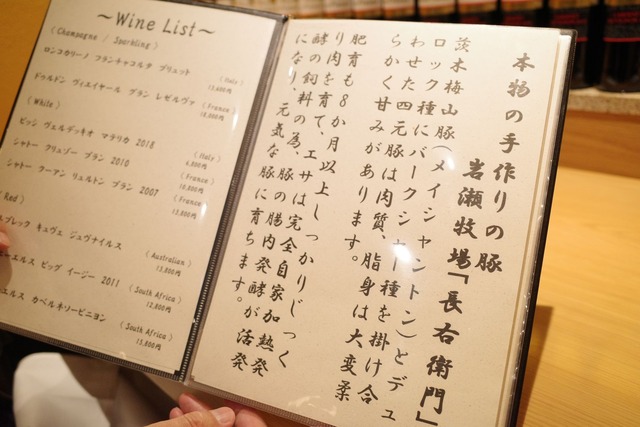 ~Wine List~
( Champagne / Sparkling )
ロンコカリーノ フランチャコルタ ブリュット
( Italy )
ドゥルドン ヴィエイヤール ブラン レゼルヴァ
( France )
( White )
ビッシ ヴェルデッキオ マテリカ 2018
( Italy )
シャトー クリュゾー ブラン 2010
( France )
シャトー クーアン リュルトン ブラン 2007
( France )
Red )
ブレック キュヴェ ジュヴナイルス
( Australian )
ーエルス ビッグ イージー 2011
( South Africa )
12,800円
エルス カベルネソービニヨン
( South Africa )
本物の手作りの豚
岩瀬牧場「長右衛門」
茨木梅山豚(メイシャントン)とデュ
ロック種にバークシャー種を掛け合
わせた四元豚は肉質、脂身は大変柔
らかく甘みがあります。
肥育も8か月以上しっかりじっく
り肉を育て、エサは完全自家加熱発
酵の飼料の為、豚の腸内発酵が活発
になり、元気な豚に育ちます。